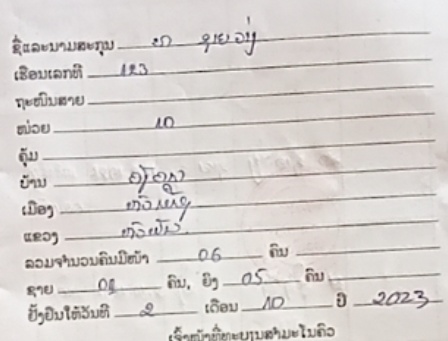 ຊື່ແລະນາມສະກຸນ
ເຮືອນເລກທີ 123
ຖະໜົນສາຍ
ໜ່ວຍ 10
ຄຸ້ມ
ບ້ານ
ເມືອງ
ແຂວງ ຫົວພັນ
ລວມຈຳນວນຄົນມີໜ້າ 06 ຄົນ
ຊາຍ 01 ຄົນ, ຍິງ 05 ຄົນ
ຢັ້ງຢືນໃຫ້ວັນທີ 2 ເດືອນ 10 ປີ 2023
ເຈົ້າໜ້າທີ່ທະບຽນສຳມະໂນຄົວ